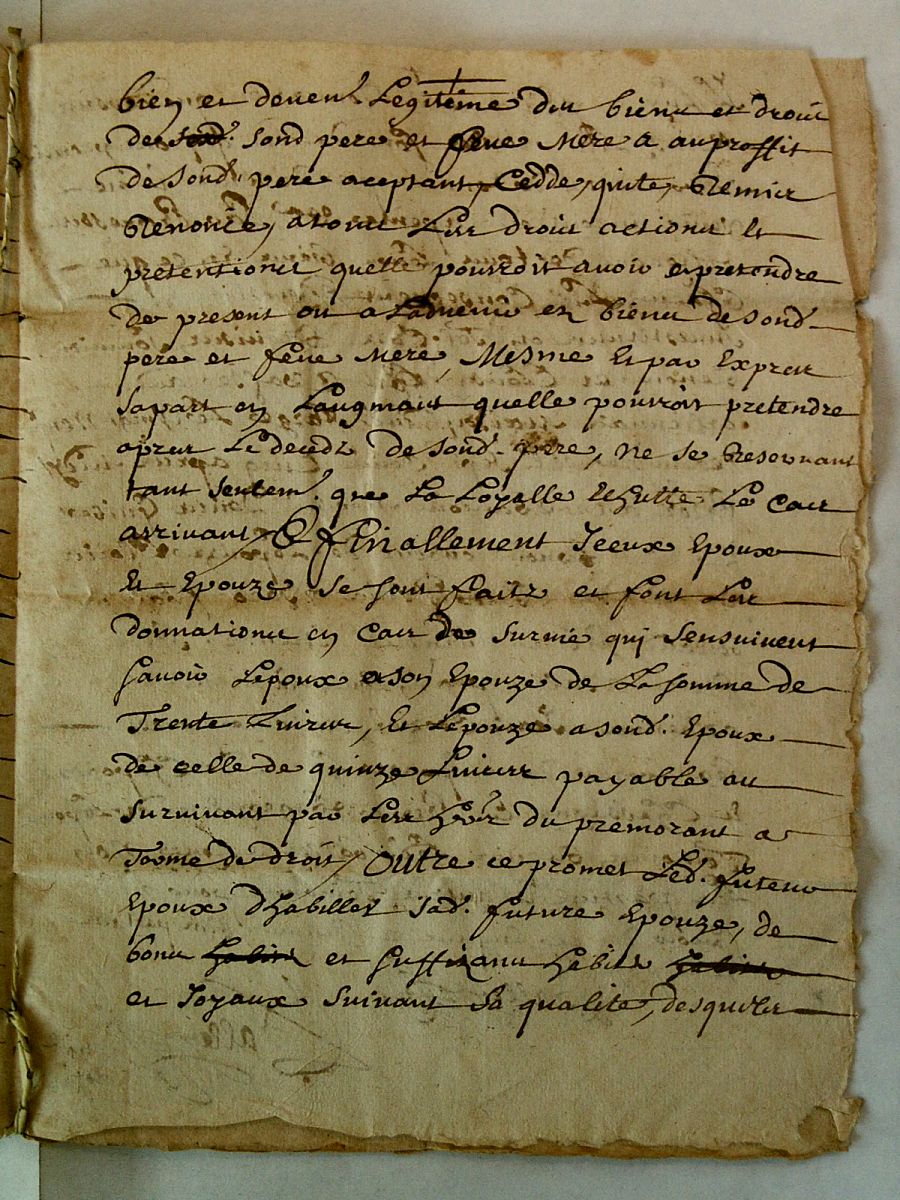 bien et deuem.t Legiteme du biens et droits
de sond. sond pere et feue Mere a au proffit
de sond. pere aceptant, Cedde, quite, Remis
Renonce, a tous Leur droits actions Et
pretentions quelle pourroit auoir et pretendre
de present ou a Laduenir en biens de sond.
pere et feue Mere, Mesme Et par Exprest
sa part en Laugmant quelle pourroit pretendre
apres Le decedz de sond. pere, ne se Reseruant
tant seulem.t que La Loyalle Echutte Le Cas
arriuant, Et finallement Iceux Epoux
Et Epouze se sont faitz et font Leur
donnations en Cas de suruie qui sensuiuent
sauoir Lepoux a son Epouze de La somme de
Trente Liures, Et Lepouze a sond. Epoux
de celle de quinze Liures payable au
suruiuant par Les her.s du premorant a
Terme de droit, Outre ce promet Led. futeur
Epoux dhabiller sad. future Epouze, de
bons habits et suffizants habits habits
et Joyaux suiuant Sa qualite, desquels